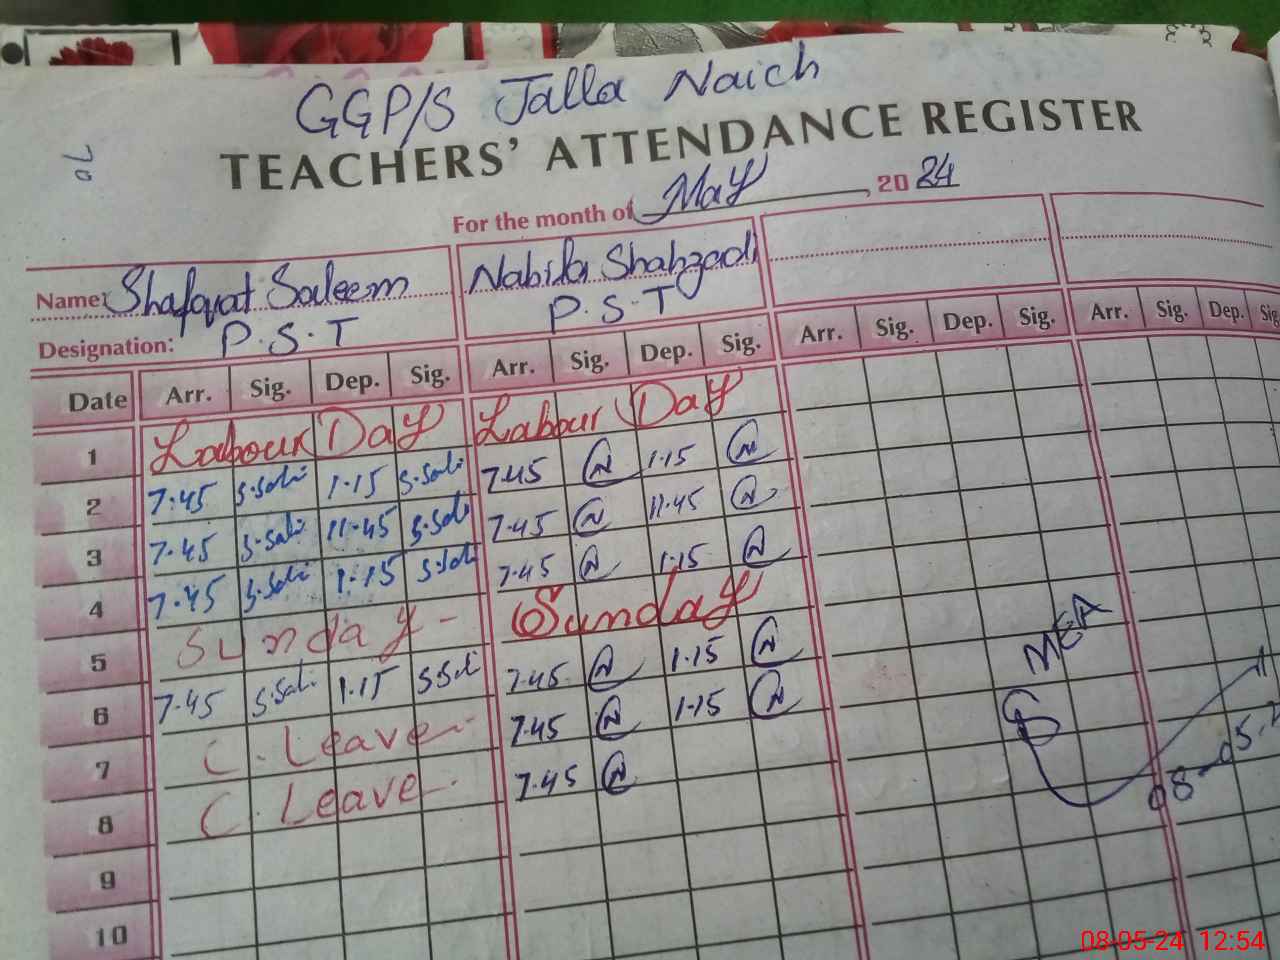 GGP/S Jalla Naich
TEACHERS' ATTENDANCE REGISTER
70
For the month of May, 2024
Name: Shafqat Saleem Nabila Shahzadi
Designation: P.S.T P.S.T
Date Arr. Sig. Dep. Sig. Arr. Sig. Dep. Sig. Arr. Sig. Dep. Sig. Arr. Sig. Dep. Sig
1 Labour Day Labour Day
2 7.45 1.15 7.45 1.15
3 7.45 11.45 7.45 11.45
4 7.45 1.15 7.45 1.15
5 Sunday - Sunday
6 7.45 1.15 7.45 1.15
7 C. Leave 7.45 1.15
8 C. Leave. 7.45
9
10
MEA
08-05-2
08-05-24 12:54